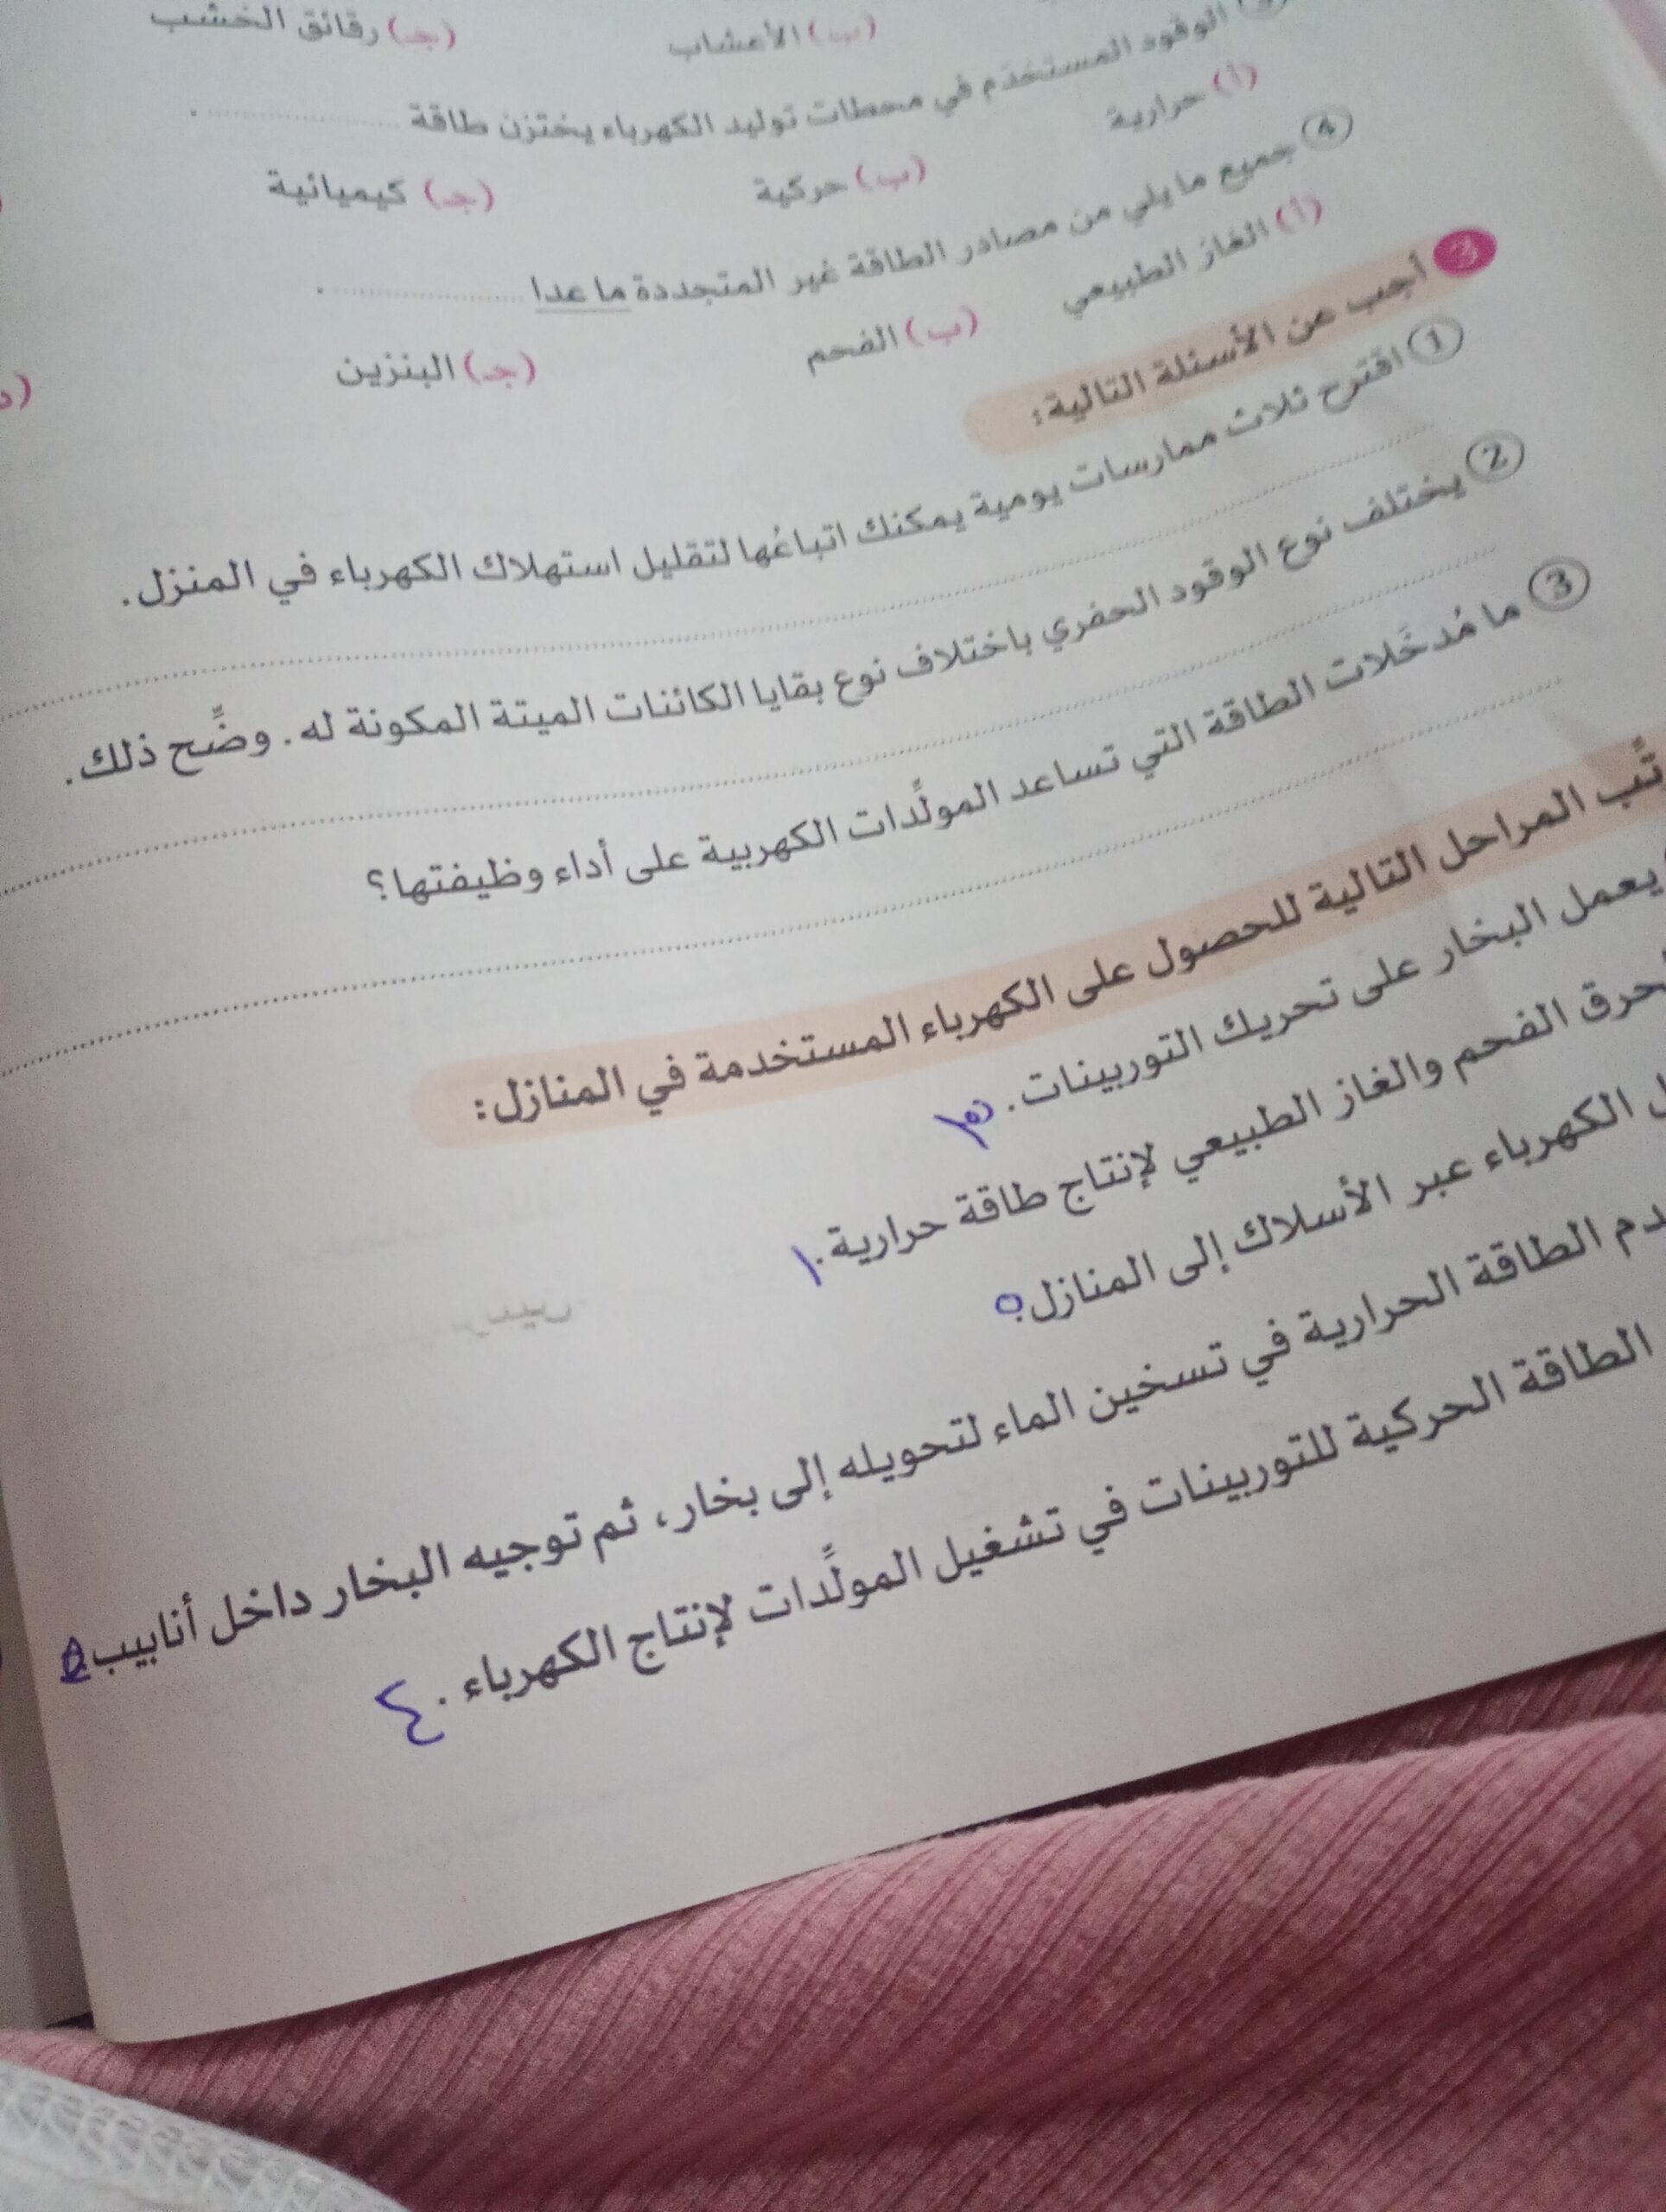 (ب) الأعشاب (جـ) رقائق الخشب
الوقود المستخدم في محطات توليد الكهرباء يختزن طاقة ....................
(أ) حرارية (ب) حركية (جـ) كيميائية
④ جميع ما يلي من مصادر الطاقة غير المتجددة ما عدا ....................
(أ) الغاز الطبيعي (ب) الفحم (جـ) البنزين (د
3 أجب عن الأسئلة التالية:
① اقترح ثلاث ممارسات يومية يمكنك اتباعُها لتقليل استهلاك الكهرباء في المنزل.
② يختلف نوع الوقود الحفري باختلاف نوع بقايا الكائنات الميتة المكونة له. وضِّح ذلك.
③ ما مُدخَلات الطاقة التي تساعد المولِّدات الكهربية على أداء وظيفتها؟
تِّب المراحل التالية للحصول على الكهرباء المستخدمة في المنازل:
يعمل البخار على تحريك التوربينات.
حرق الفحم والغاز الطبيعي لإنتاج طاقة حرارية. ١
ل الكهرباء عبر الأسلاك إلى المنازل. ٥
دم الطاقة الحرارية في تسخين الماء لتحويله إلى بخار، ثم توجيه البخار داخل أنابيب
الطاقة الحركية للتوربينات في تشغيل المولِّدات لإنتاج الكهرباء. ٤